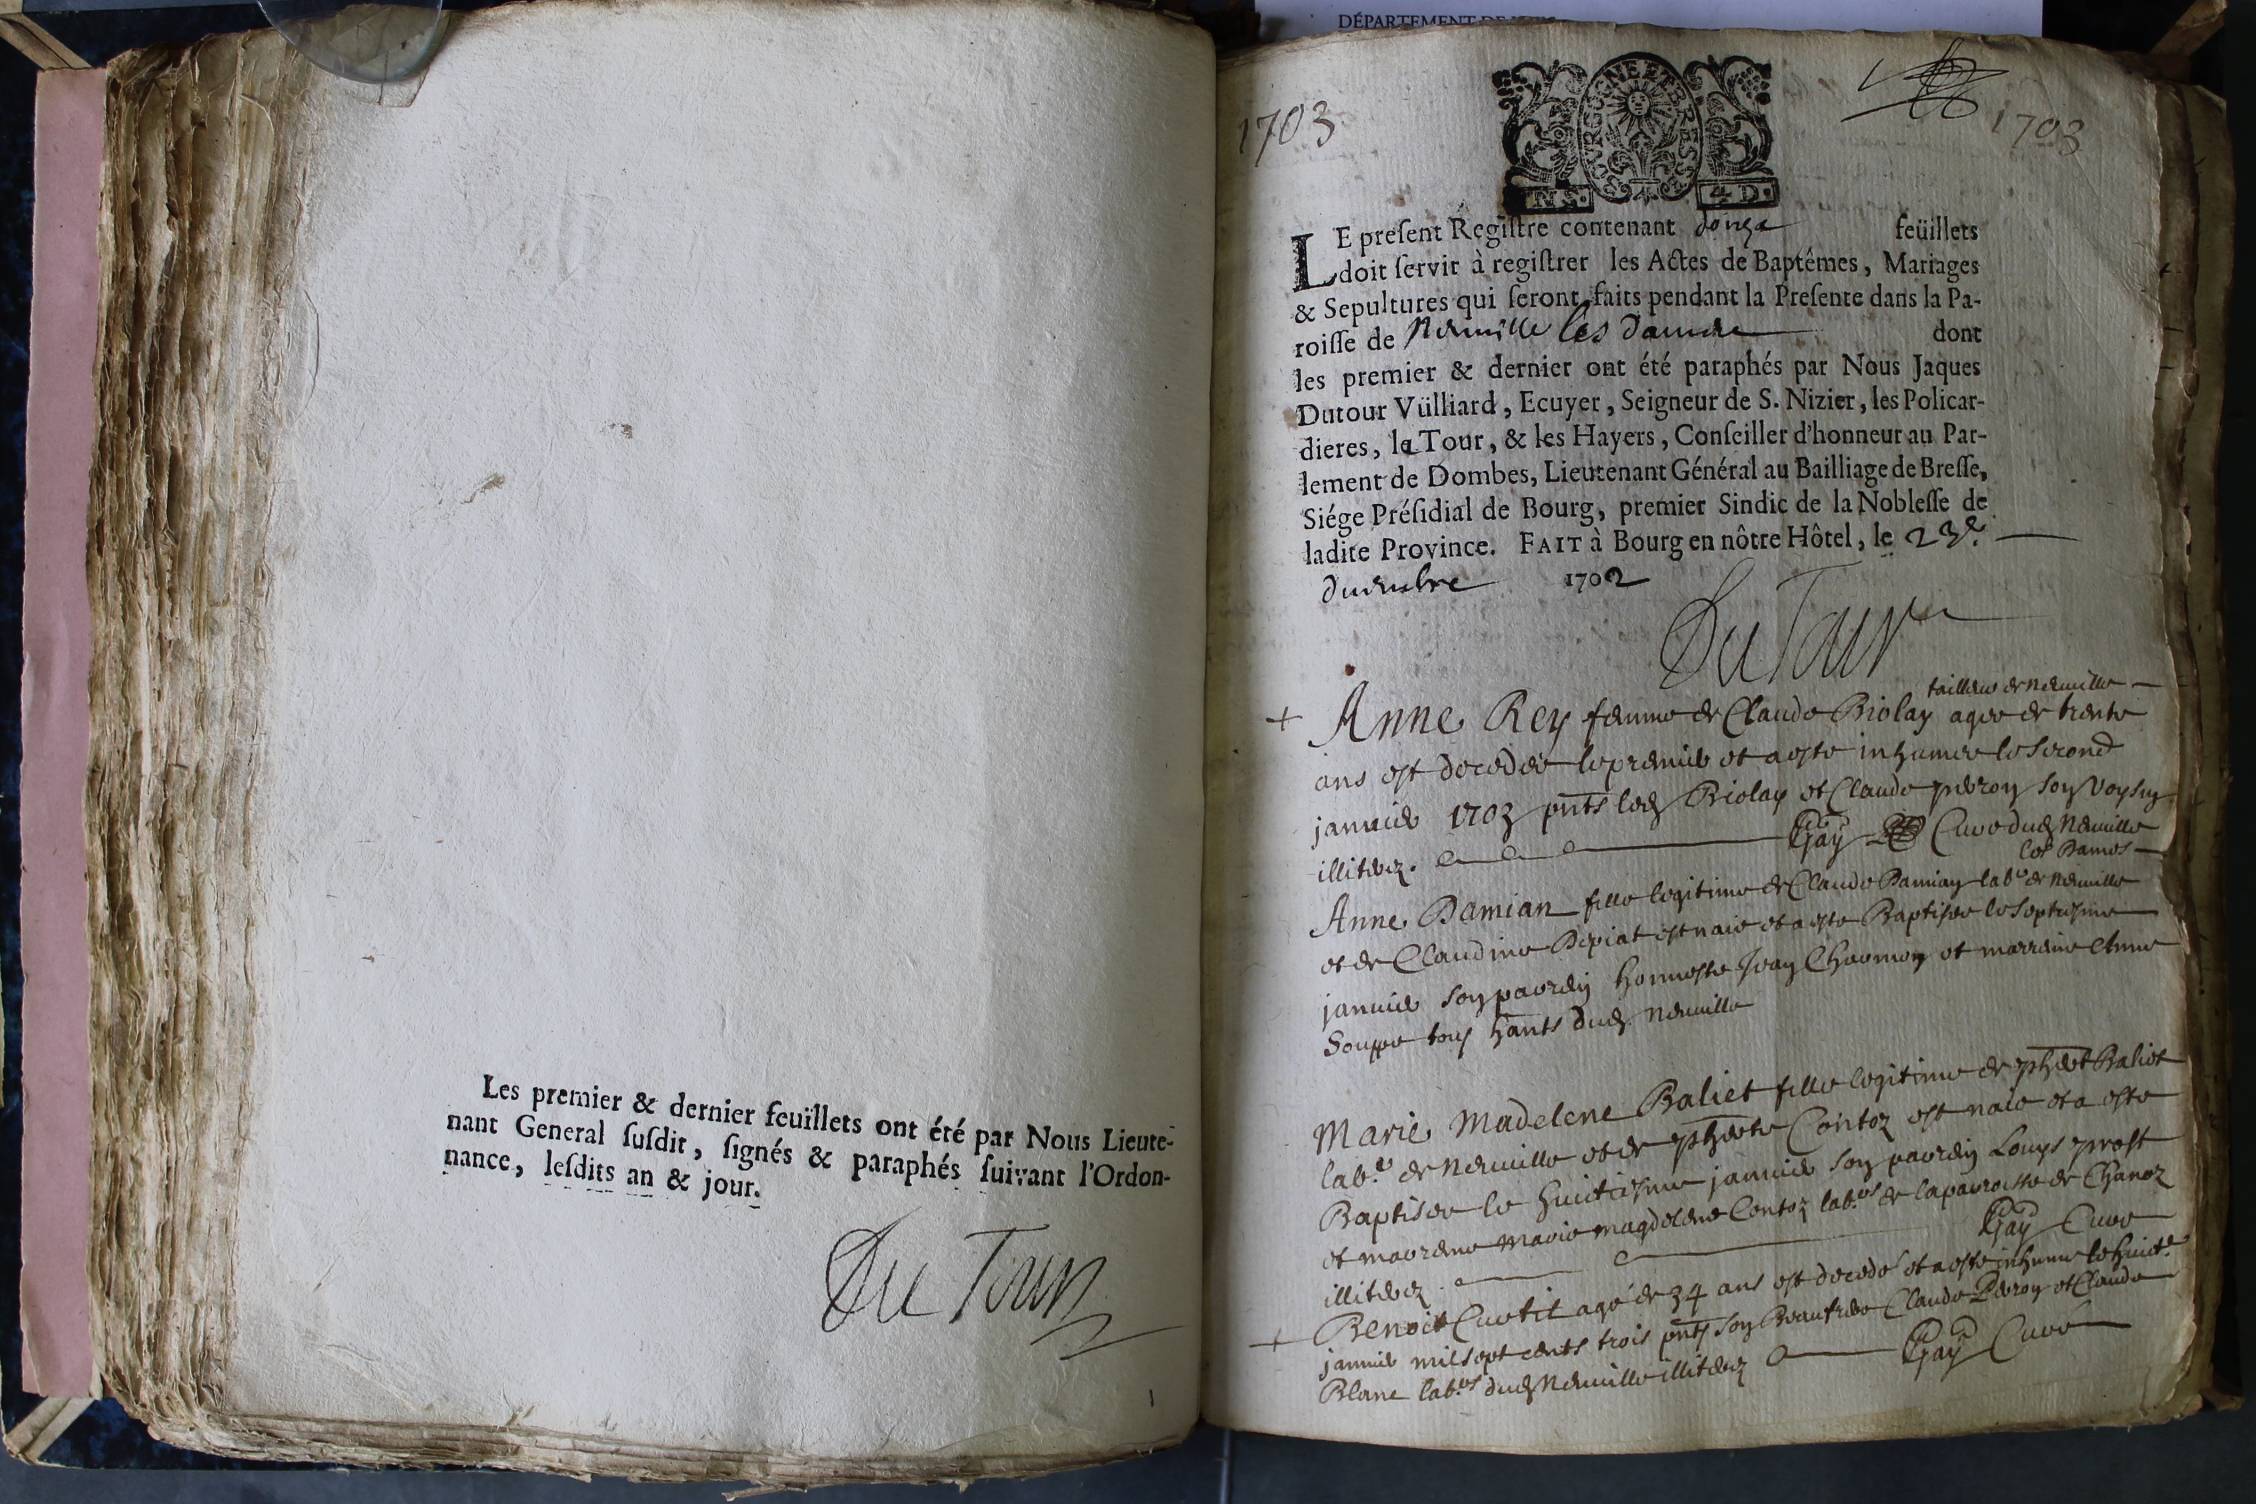 Les premier & dernier feüillets ont été par Nous Lieute-
nant General ſuſdit, ſignés & paraphés ſuivant l'Ordon-
nance, leſdits an & jour.
Du Tour
1
DÉPARTEMENT DE
1703
BOURGOGNE ET BRESSE
1703
4 D.
LE preſent Regiſtre contenant douze feüillets
doit ſervir à regiſtrer les Actes de Baptêmes, Mariages
& Sepultures qui ſeront faits pendant la Preſente dans la Pa-
roiſſe de Neuville les dames dont
les premier & dernier ont été paraphés par Nous Jaques
Dutour Vülliard, Ecuyer, Seigneur de S. Nizier, les Policar-
dieres, la Tour, & les Hayers, Conſeiller d'honneur au Par-
lement de Dombes, Lieutenant Général au Bailliage de Breſſe,
Siége Préſidial de Bourg, premier Sindic de la Nobleſſe de
ladite Province. FAIT à Bourg en nôtre Hôtel, le 23e.
decembre 1702
Du Tour
tailleur de neuville
+ Anne Rey femme de Claude Biolay agee de trente
ans est decedée le premier et a este inhumee le second
janvier 1703 pnts led Biolay et Claude peron son voysin
illiterez. Gay Cure dud neuville
les Dames
Anne Damian fille legitime de Claude Damian labr de neuville
et de Claudine Depiat est naie et a este Baptisee le septiesme
janvier son parrein honneste Jean Charmon et marraine Anne
tous hants dud neuville
Marie Madelene Baliet fille legitime de phbet Baliet
labr de neuville et de phberte Contoz est naie et a este
Baptisee le huictiesme janvier son parrein Louys prost
et marrene marie magdelene Contoz labrs de la parroisse de Chanoz
illiterez. Gay Cure
+ Benoit Curtil agé de 34 ans est decedé et a este inhumé le huict.e
janvier mil sept cents trois pnts son Beaufrere Claude Peron et Claude
Blanc labrs dud Neuville illiterez Gay Curé